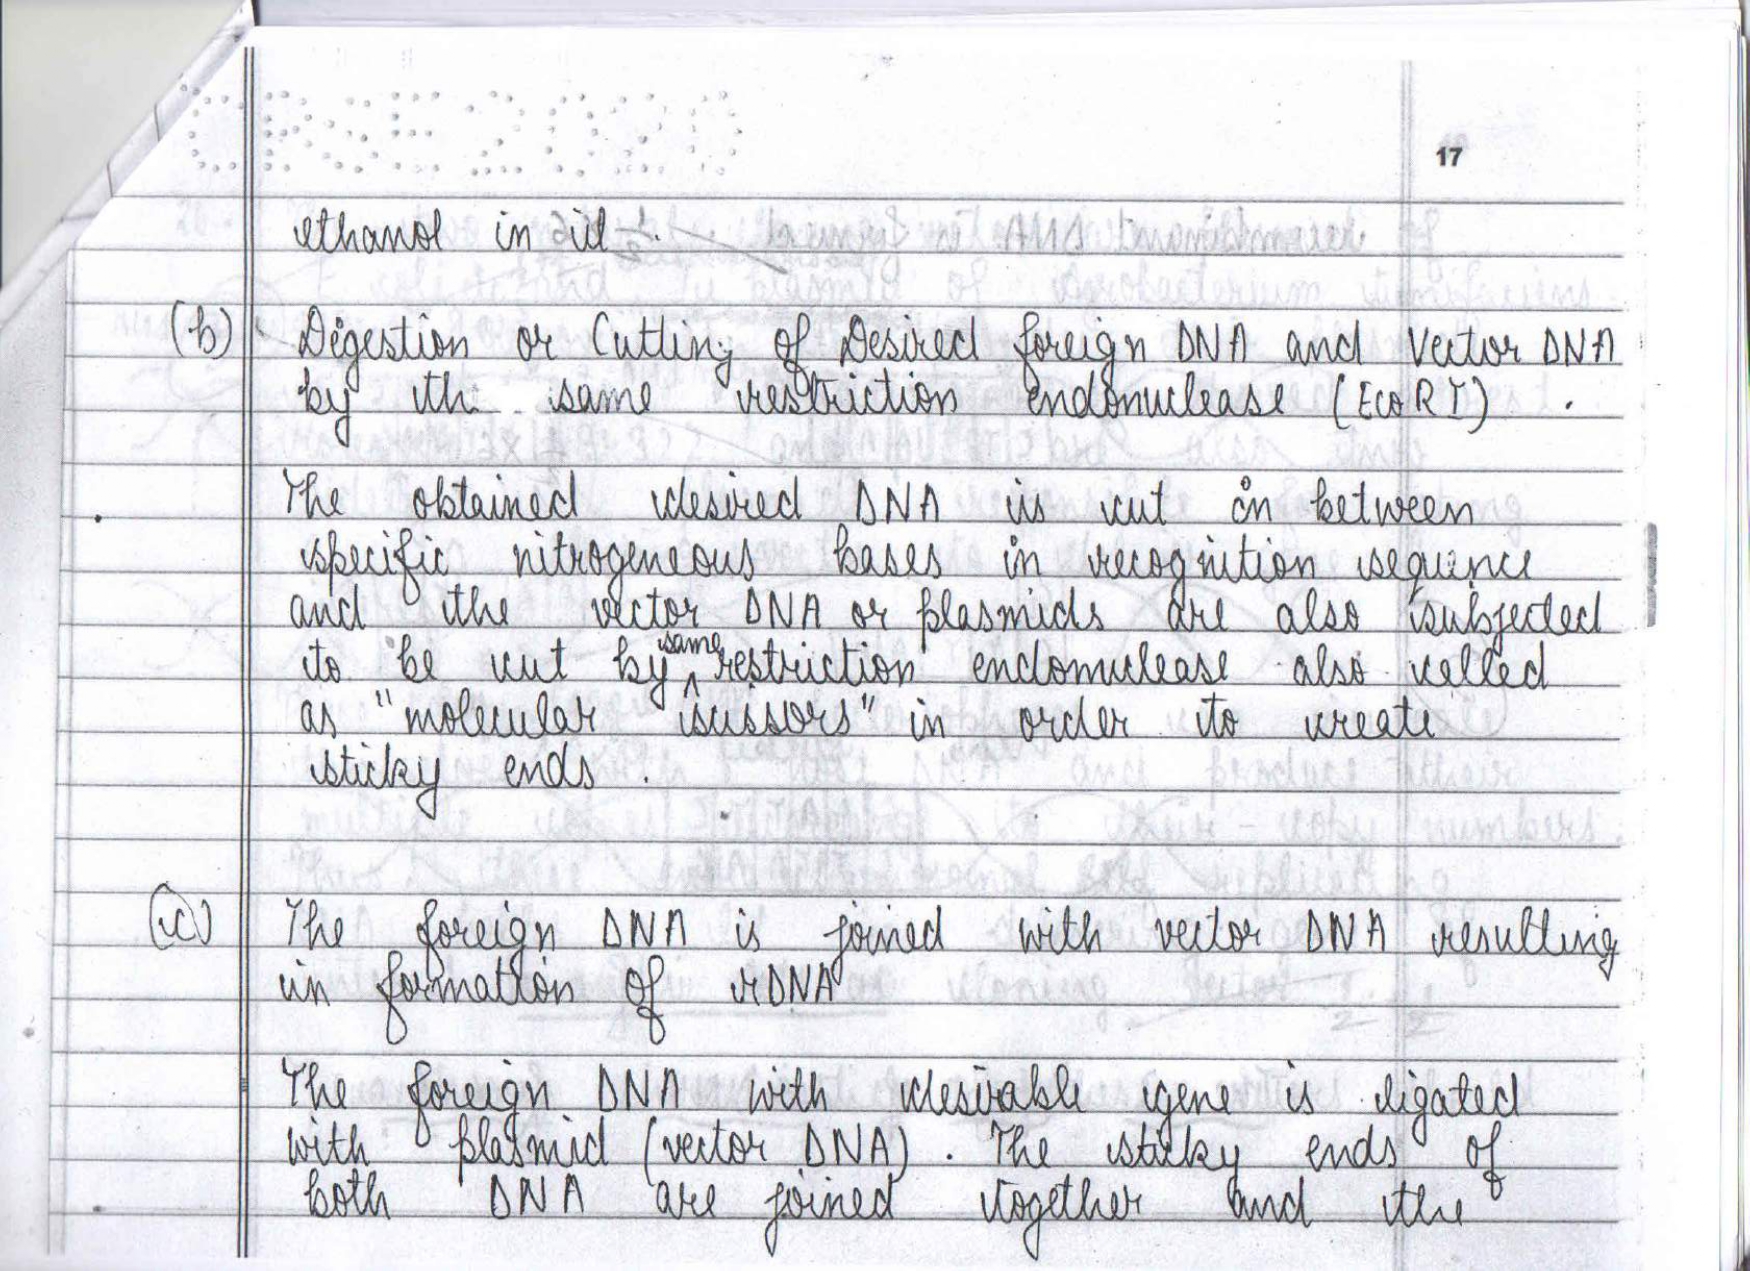 CBSE 2020
17
ethanol in it.
(b) Digestion or Cutting of Desired foreign DNA and Vector DNA
by the same restriction endonuclease (EcoRI).
The obtained desired DNA is cut in between
specific nitrogeneous bases in recognition sequence
and the vector DNA or plasmids are also subjected
to be cut by same restriction endonuclease also called
as "molecular scissors" in order to create
sticky ends.
(c) The foreign DNA is joined with vector DNA resulting
in formation of rDNA
The foreign DNA with desirable gene is ligated
with plasmid (vector DNA). The sticky ends of
both DNA are joined together and the